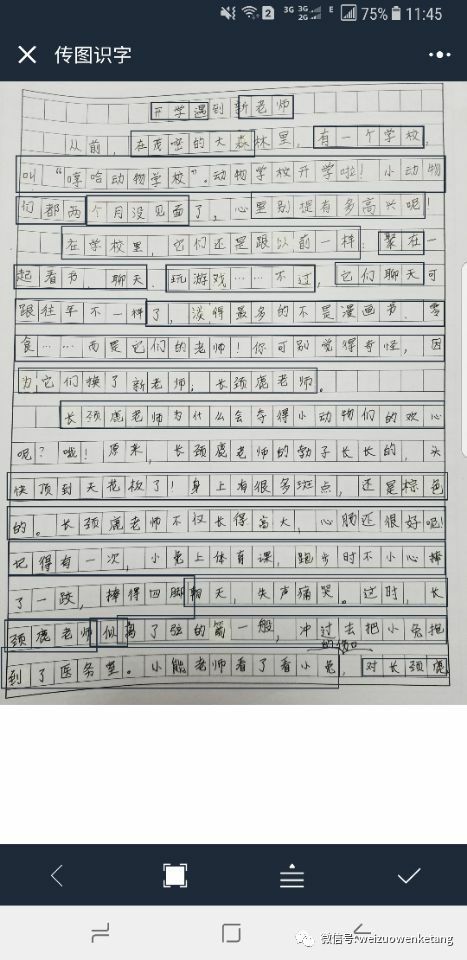 11:45
75%
传图识字
开学遇到新老师
从前，在茂密的大森林里，有一个学校，
叫“哼哈动物学校”。动物学校开学啦！小动物
们都两个月没见面了，心里别提有多高兴呢！
在学校里，它们还是跟以前一样：聚在一
起看书、聊天、玩游戏……不过，它们聊天可
跟往年不一样了，谈得最多的不是漫画书、零
食……而是它们的老师！你可别觉得奇怪，因
为它们换了新老师：长颈鹿老师。
长颈鹿老师为什么会夺得小动物们的欢心
呢？哦！原来，长颈鹿老师的脖子长长的，头
快顶到天花板了！身上有很多斑点，还是棕色
的。长颈鹿老师不仅长得高大，心肠还很好呢！
记得有一次，小兔上体育课，跑步时不小心摔
了一跌，摔得四脚朝天，失声痛哭。这时，长
颈鹿老师似离了弦的箭一般，冲过去把小兔抱
到了医务室。小熊老师看了看小兔的伤口，对长颈鹿
微信号: weizuowenketang